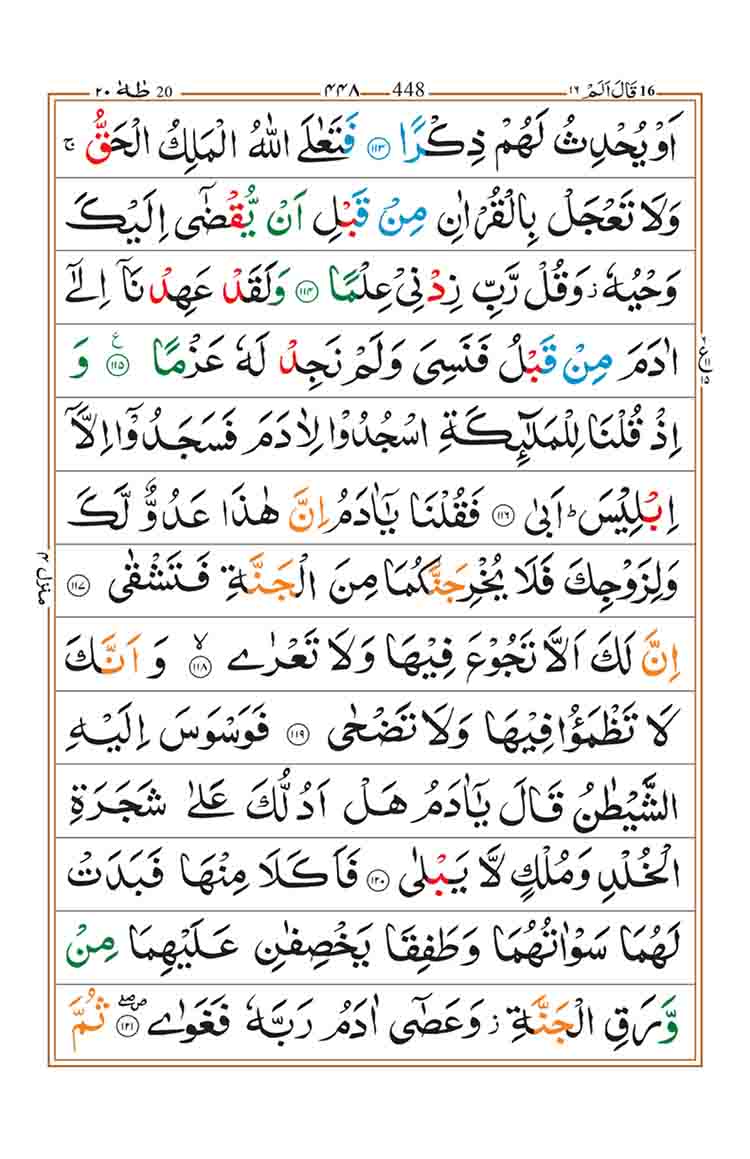 قَالَ اَلَمۡ ١٦ 16 448 ٤٤٨ طٰهٰ ٢٠ 20
اَوۡ يُحۡدِثُ لَهُمۡ ذِكۡرًا ١١٣ فَتَعٰلَى اللّٰهُ الۡمَلِكُ الۡحَـقُّ ۚ
وَلَا تَعۡجَلۡ بِالۡقُرۡاٰنِ مِنۡ قَبۡلِ اَنۡ يُّقۡضٰٓى اِلَيۡكَ
وَحۡيُهٗ ز وَقُلْ رَّبِّ زِدۡنِىۡ عِلۡمًا ١١٤ وَلَـقَدۡ عَهِدۡنَاۤ اِلٰٓى
اٰدَمَ مِنۡ قَبۡلُ فَنَسِىَ وَلَمۡ نَجِدۡ لَهٗ عَزۡمًا ١١٥ ع وَ
اِذۡ قُلۡنَا لِلۡمَلٰٓٮِٕكَةِ اسۡجُدُوۡا لِاٰدَمَ فَسَجَدُوۡۤا اِلَّاۤ
اِبۡلِيۡسَؕ اَبٰى ١١٦ فَقُلۡنَا يٰۤاٰدَمُ اِنَّ هٰذَا عَدُوٌّ لَّكَ
وَلِزَوۡجِكَ فَلَا يُخۡرِجَنَّكُمَا مِنَ الۡجَـنَّةِ فَتَشۡقٰى ١١٧
اِنَّ لَـكَ اَلَّا تَجُوۡعَ فِيۡهَا وَلَا تَعۡرٰى ۙ ١١٨ وَ اَنَّكَ
لَا تَظۡمَؤُا فِيۡهَا وَلَا تَضۡحٰى ١١٩ فَوَسۡوَسَ اِلَيۡهِ
الشَّيۡطٰنُ قَالَ يٰۤاٰدَمُ هَلۡ اَدُلُّكَ عَلٰى شَجَرَةِ
الۡخُلۡدِ وَمُلۡكٍ لَّا يَبۡلٰى ١٢٠ فَاَكَلَا مِنۡهَا فَبَدَتۡ
لَهُمَا سَوۡاٰ تُهُمَا وَطَفِقَا يَخۡصِفٰنِ عَلَيۡهِمَا مِنۡ
وَّرَقِ الۡجَـنَّةِ ز وَعَصٰۤى اٰدَمُ رَبَّهٗ فَغَوٰى ١٢١ ثُمَّ
منزل ٤